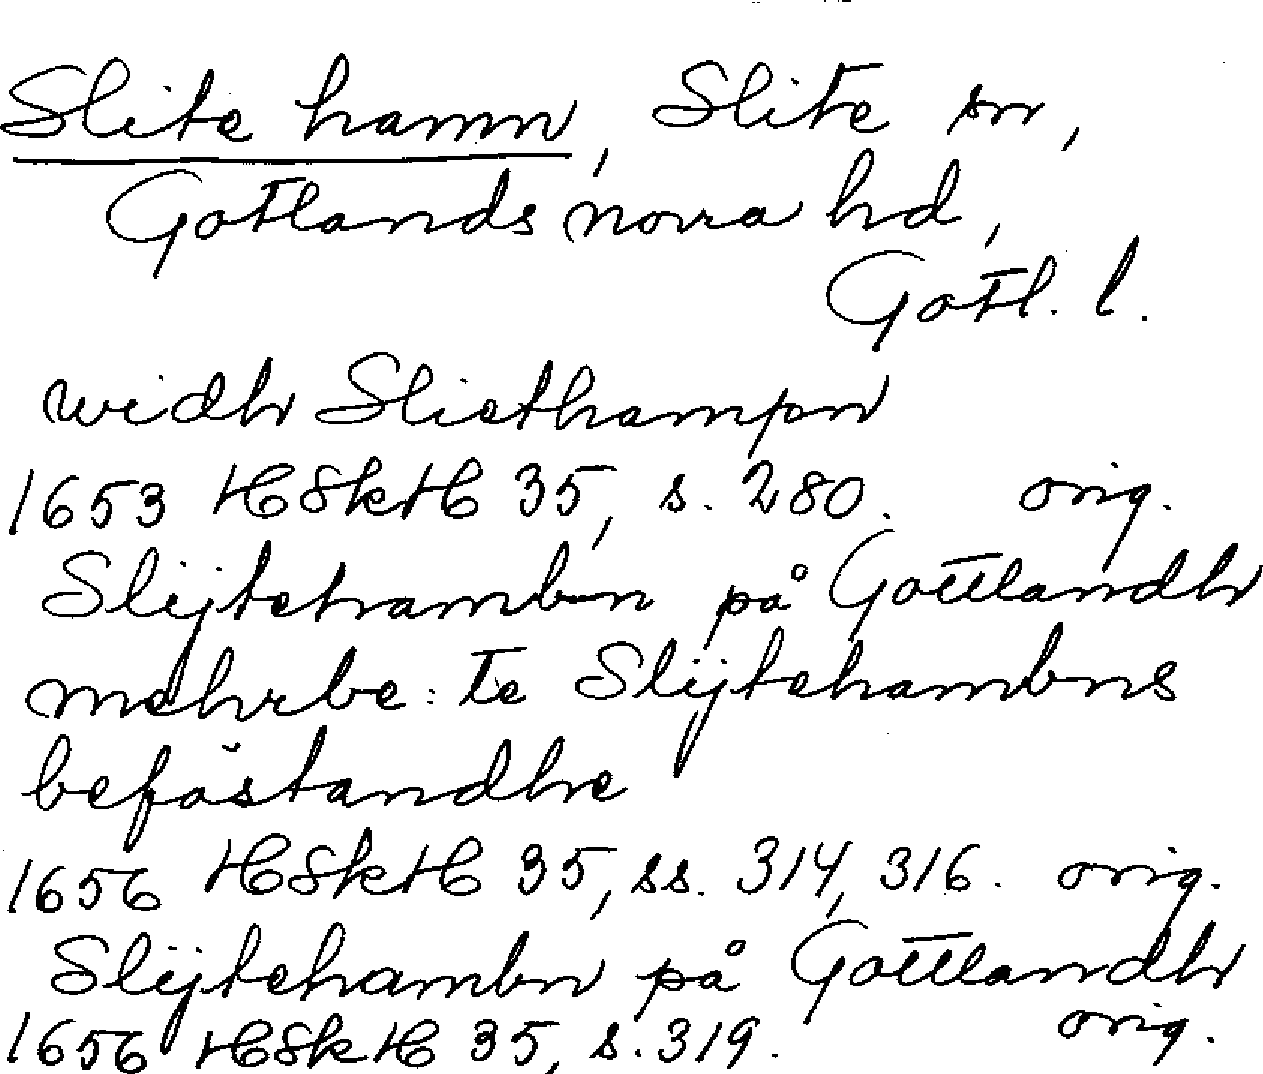 Slite hamn, Slite sn,
Gotlands norra hd,
Gotl. l.
widh Sliethampn
1653 HSkH 35, s. 280. orig.
Slijtehambn på Gottlandh
mehrbe: te Slijtehambns
befästandhe
1656 HSkH 35, ss. 314, 316. orig.
Slijtehambn på Gottlandh
1656 HSkH 35, s. 319. orig.